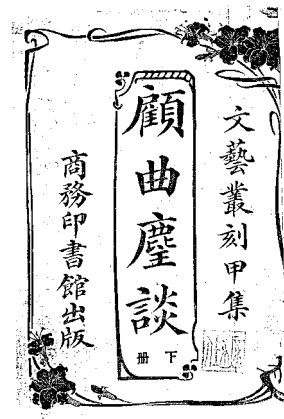 文藝叢刻甲集
顧曲麈談
下册
商務印書館出版